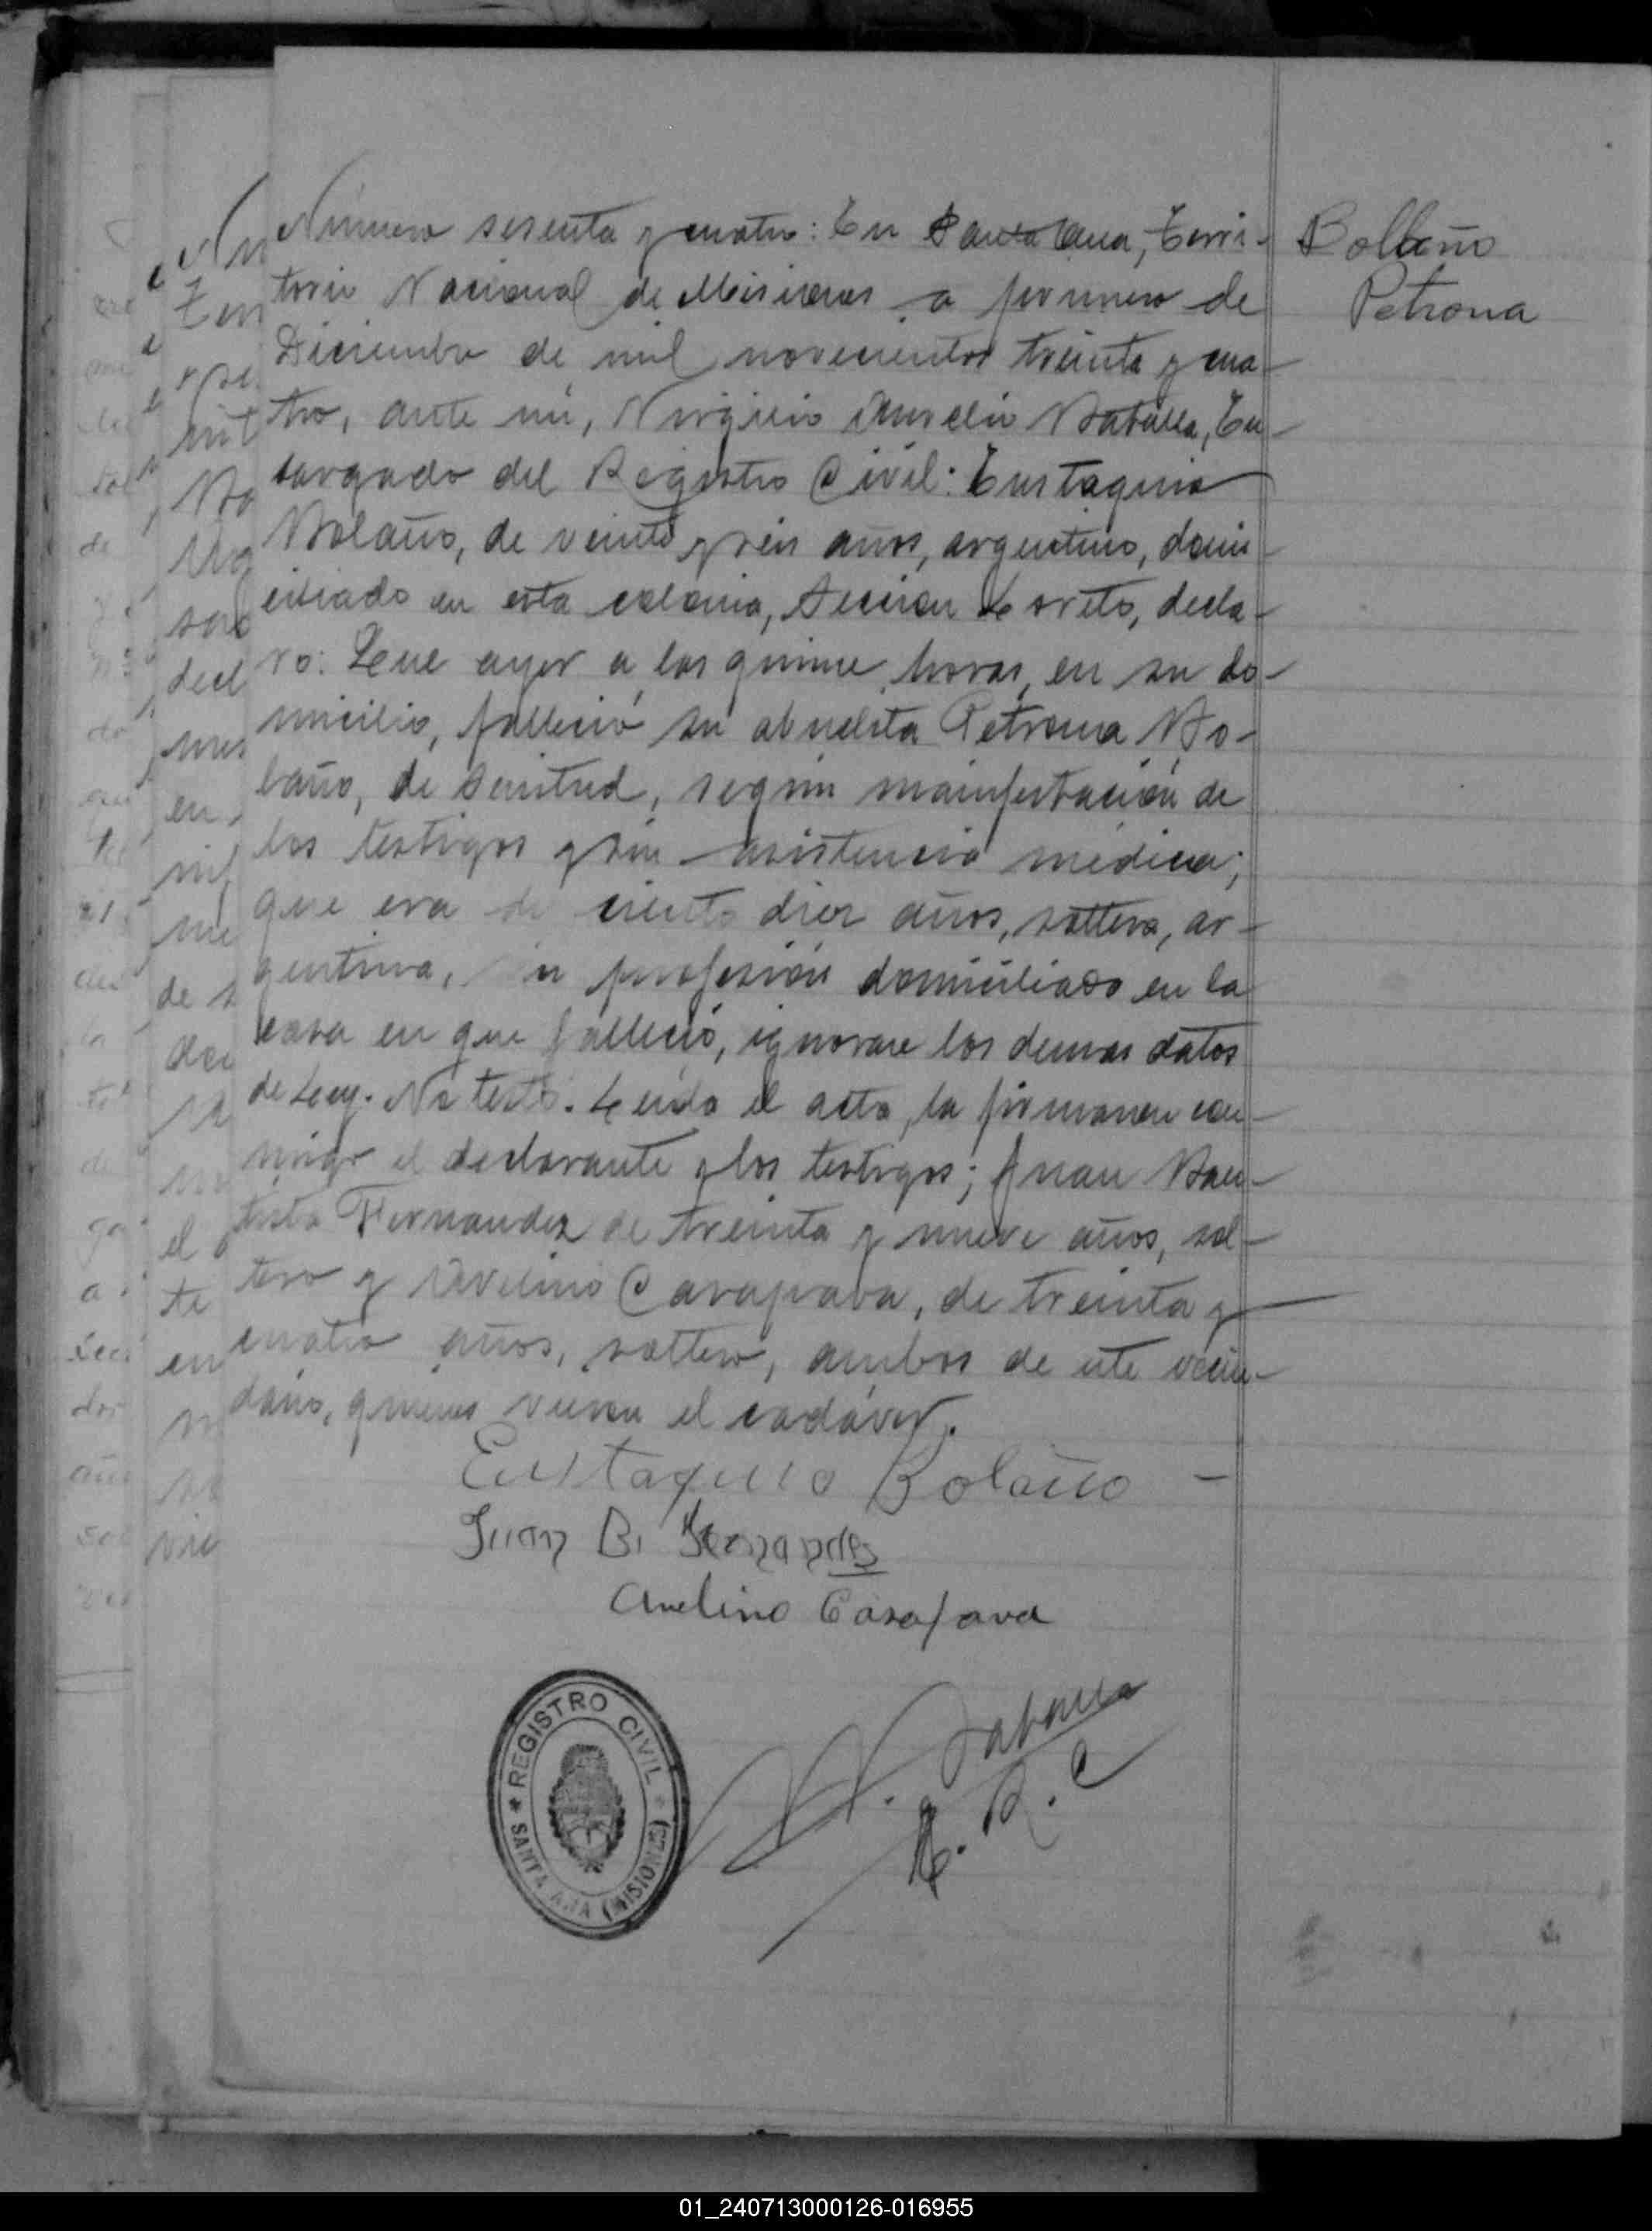 Número sesenta y cuatro: En Santa Ana, Terri-
torio Nacional de Misiones a primero de
Diciembre de mil novecientos treinta y cua-
tro, ante mi, Virginio Aurelio Baballa, En-
cargado del Registro Civil: Eustaquio
Bolaño, de veinte y seis años, argentino, domi-
ciliado en esta colonia, Sección Loreto, decla-
ro: Que ayer a las quince horas, en su do-
micilio, falleció su abuelita Petrona Bo-
laño, de senitud, según mainfestación de
los testigos y sin asistencia médica;
que era de ciento diez años, soltera, ar-
gentina, sin profesión domiciliado en la
casa en que falleció, ignorase los demas datos
de Ley. No testó. Leída el acta, la firmaron con-
migo el declarante y los testigos; Juan Bau-
tista Fernandez de treinta y nueve años, sol-
tero y Avelino Carapava, de treinta y
cuatro años, soltero, ambos de este vecin-
dario, quienes vieron el cadáver.
Eustaquio Bolaño -
Juan B. Fernandes
Avelino Carapava
Bolaño
Petrona
REGISTRO CIVIL
SANTA ANA (MISIONES)
E. R. C
01_240713000126-016955